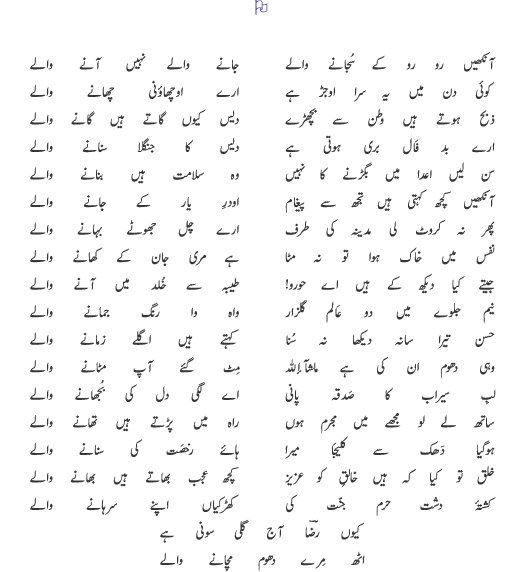 آنکھیں رو رو کے سُجانے والے جانے والے نہیں آنے والے
کوئی دن میں یہ سرا اوجڑ ہے ارے اوچھاؤنی چھانے والے
ذبح ہوتے ہیں وطن سے بچھڑے دیس کیوں گاتے ہیں گانے والے
ارے بد فال بری ہوتی ہے دیس کا جنگلا سنانے والے
سن لیں اعدا میں بگڑنے کا نہیں وہ سلامت ہیں بنانے والے
آنکھیں کچھ کہتی ہیں تجھ سے پیغام اودرِ یار کے جانے والے
پھر نہ کروٹ لی مدینہ کی طرف ارے چل جھوٹے بہانے والے
نفس میں خاک ہوا تو نہ مٹا ہے مری جان کے کھانے والے
جیتے کیا دیکھ کے ہیں اے حورو! طیبہ سے خُلد میں آنے والے
نیم جلوے میں دو عالم گلزار واہ وا رنگ جمانے والے
حسن تیرا سانہ دیکھا نہ سُنا کہتے ہیں اگلے زمانے والے
وہی دھوم ان کی ہے ماشآءاللہ مِٹ گئے آپ مٹانے والے
لبِ سیراب کا صَدقہ پانی اے لگی دل کی بُجھانے والے
ساتھ لے لو مجھے میں مجرم ہوں راہ میں پڑتے ہیں تھانے والے
ہوگیا دَھک سے کلیجا میرا ہائے رخصت کی سنانے والے
خلق تو کیا کہ ہیں خالق کو عزیز کچھ عجب بھاتے ہیں بھانے والے
کشتۂ دشت حرم جنّت کی کھڑکیاں اپنے سرہانے والے
کیوں رضؔا آج گلی سونی ہے
اٹھ مِرے دھوم مچانے والے